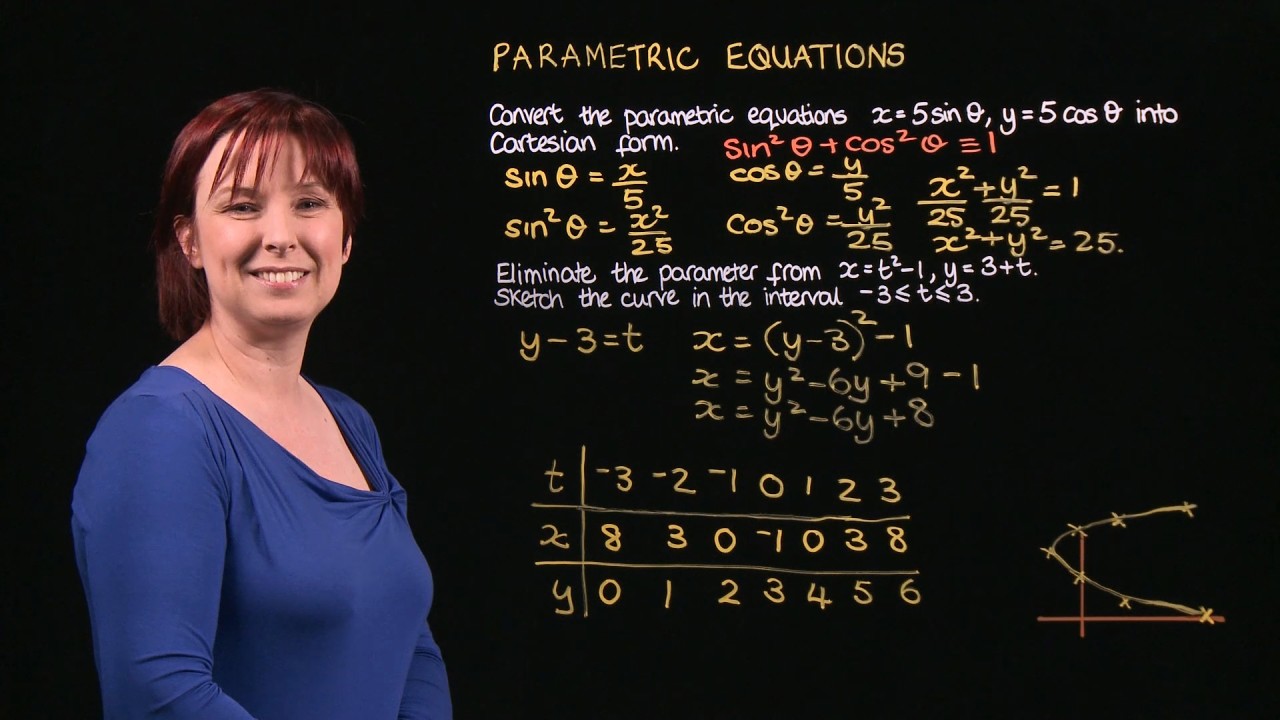 PARAMETRIC EQUATIONS
Convert the parametric equations x = 5 sin θ, y = 5 cos θ into
Cartesian form. sin² θ + cos² θ ≡ 1
sin θ = x/5 cos θ = y/5 x²/25 + y²/25 = 1
sin² θ = x²/25 cos² θ = y²/25 x² + y² = 25.
Eliminate the parameter from x = t² - 1, y = 3 + t.
Sketch the curve in the interval -3 ≤ t ≤ 3.
y - 3 = t x = (y - 3)² - 1
x = y² - 6y + 9 - 1
x = y² - 6y + 8
t -3 -2 -1 0 1 2 3
x 8 3 0 -1 0 3 8
y 0 1 2 3 4 5 6